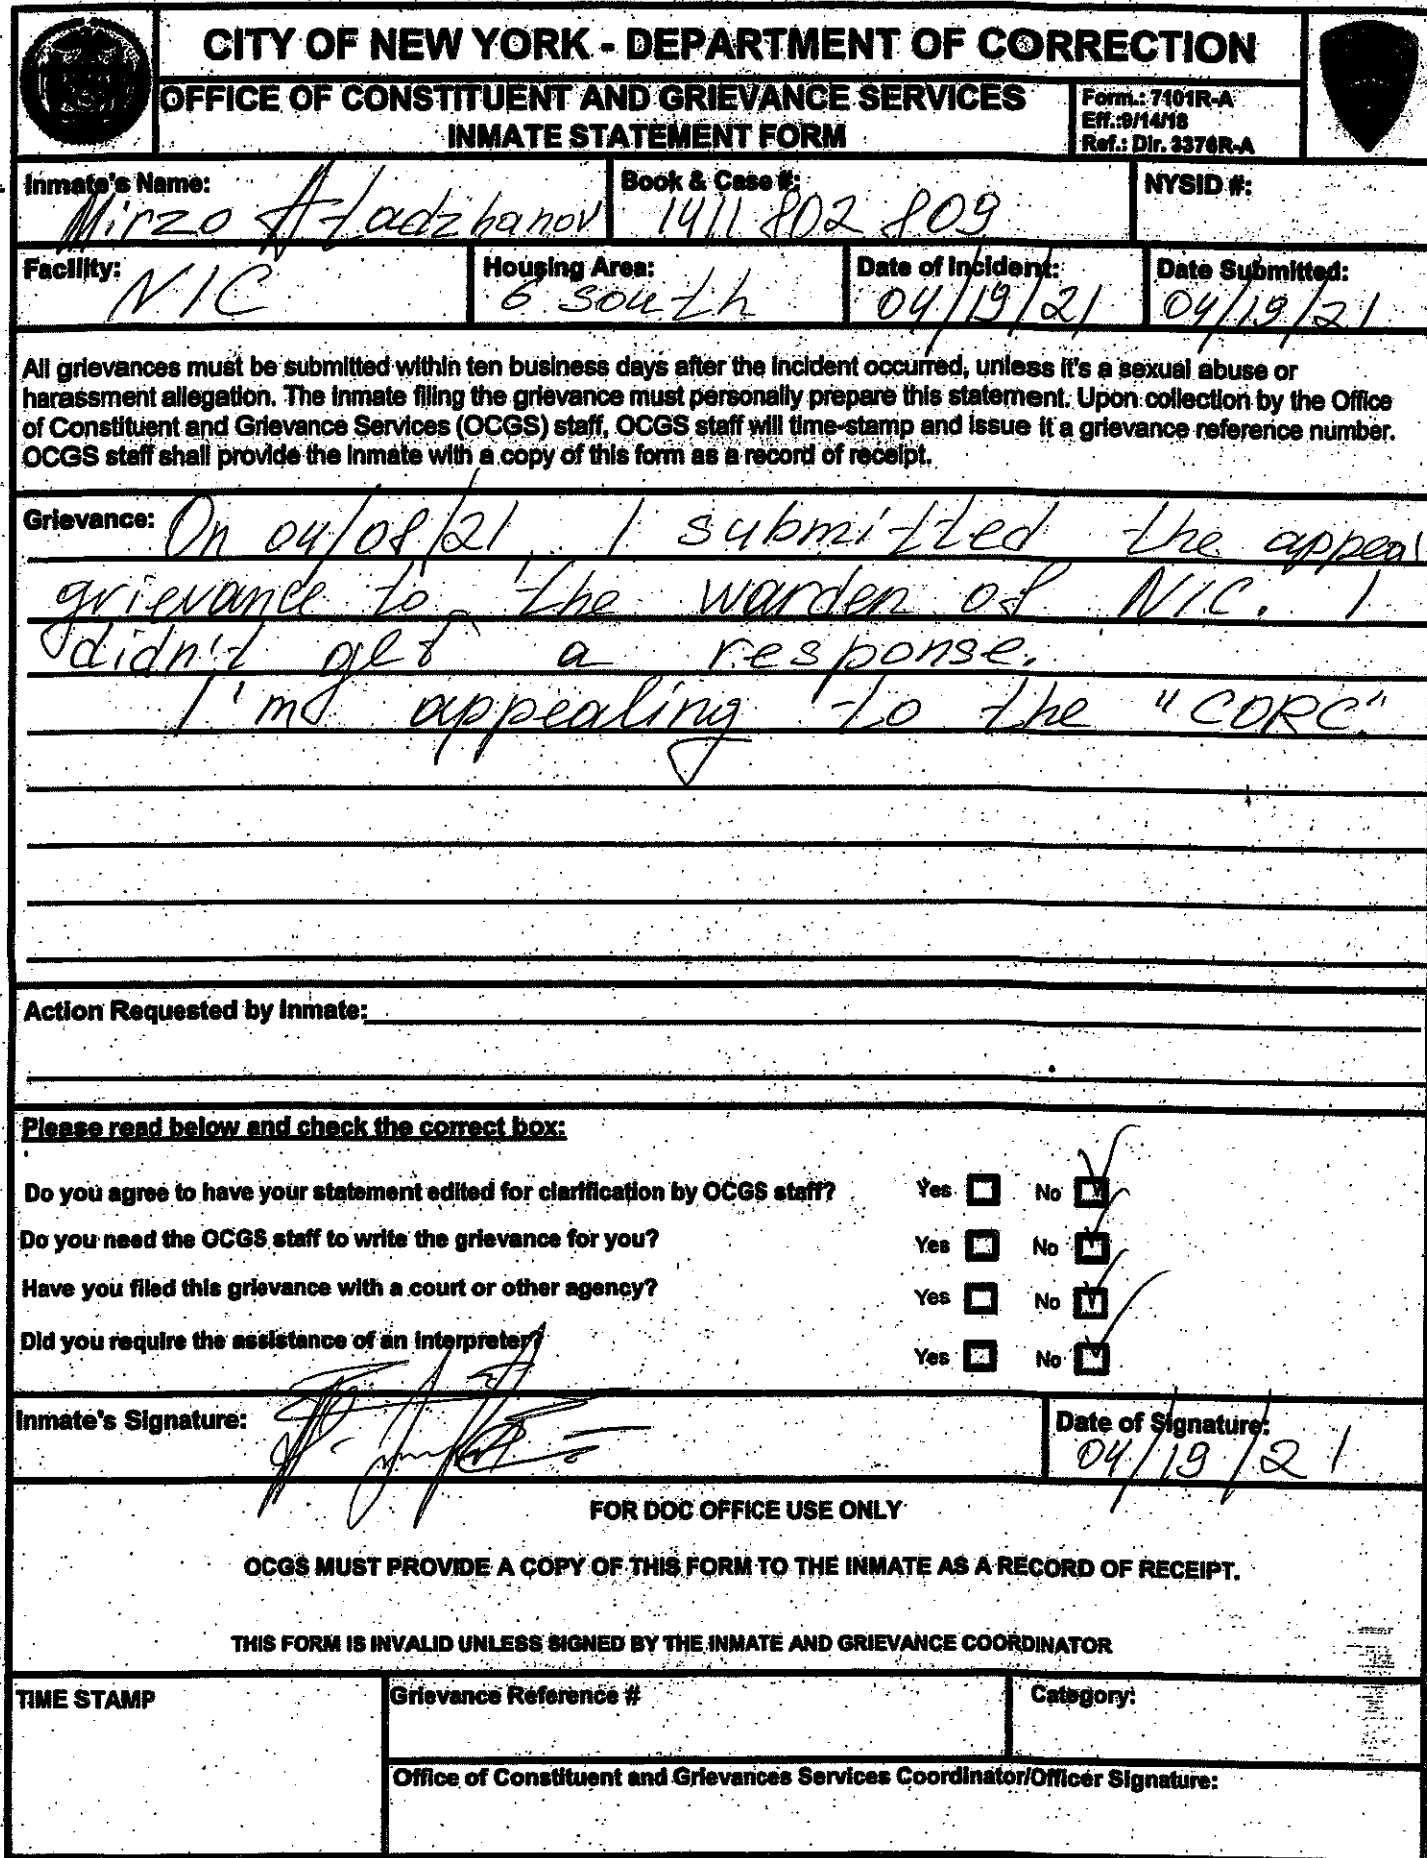 CITY OF NEW YORK - DEPARTMENT OF CORRECTION
OFFICE OF CONSTITUENT AND GRIEVANCE SERVICES
INMATE STATEMENT FORM
Form.: 7101R-A
Eff.:9/14/18
Ref.: Dir. 3376R-A
Inmate's Name: Mirzo Atadzhanov
Book & Case #: 1411 802 809
NYSID #:
Facility: NIC
Housing Area: 6 south
Date of Incident: 04/19/21
Date Submitted: 04/19/21
All grievances must be submitted within ten business days after the incident occurred, unless it's a sexual abuse or
harassment allegation. The inmate filing the grievance must personally prepare this statement. Upon collection by the Office
of Constituent and Grievance Services (OCGS) staff, OCGS staff will time-stamp and issue it a grievance reference number.
OCGS staff shall provide the inmate with a copy of this form as a record of receipt.
Grievance: On 04/08/21 I submitted the appeal
grievance to the warden of NIC. I
didn't get a response.
I'm appealing to the "CORC"
Action Requested by Inmate:
Please read below and check the correct box:
Do you agree to have your statement edited for clarification by OCGS staff? Yes No
Do you need the OCGS staff to write the grievance for you? Yes No
Have you filed this grievance with a court or other agency? Yes No
Did you require the assistance of an interpreter? Yes No
Inmate's Signature:
Date of Signature: 04/19/21
FOR DOC OFFICE USE ONLY
OCGS MUST PROVIDE A COPY OF THIS FORM TO THE INMATE AS A RECORD OF RECEIPT.
THIS FORM IS INVALID UNLESS SIGNED BY THE INMATE AND GRIEVANCE COORDINATOR
TIME STAMP
Grievance Reference #
Category:
Office of Constituent and Grievances Services Coordinator/Officer Signature: